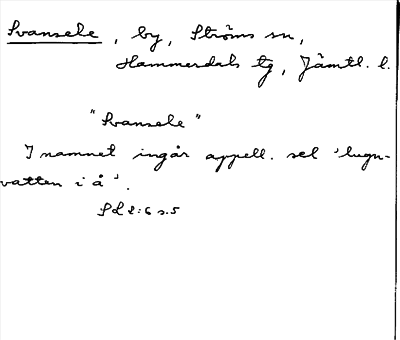 Svansele, by, Ströms sn,
Hammerdals tg, Jämtl. l.
"Svansele"
I namnet ingår appell. sel 'lugn-
vatten i å'.
SOL 2:6 s.5